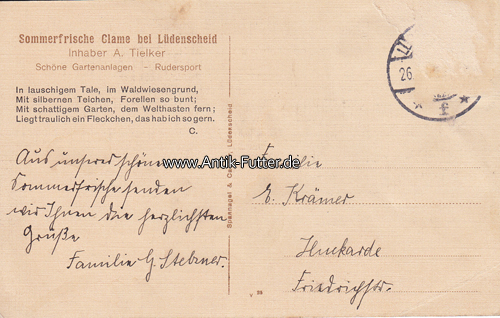 Sommerfrische Clame bei Lüdenscheid
Inhaber A. Tielker
Schöne Gartenanlagen – Rudersport
In lauschigem Tale, im Waldwiesengrund,
Mit silbernen Teichen, Forellen so bunt;
Mit schattigem Garten, dem Welthasten fern;
Liegt traulich ein Fleckchen, das hab ich so gern.
C.
Aus unserer schönen
Sommerfrische senden
wir Ihnen die herzlichsten
Grüße
Familie G. Stebner.
www.Antik-Futter.de
Spannagel & Lüdenscheid
26
Familie
E. Krämer
Huckarde
Friedrichstr.